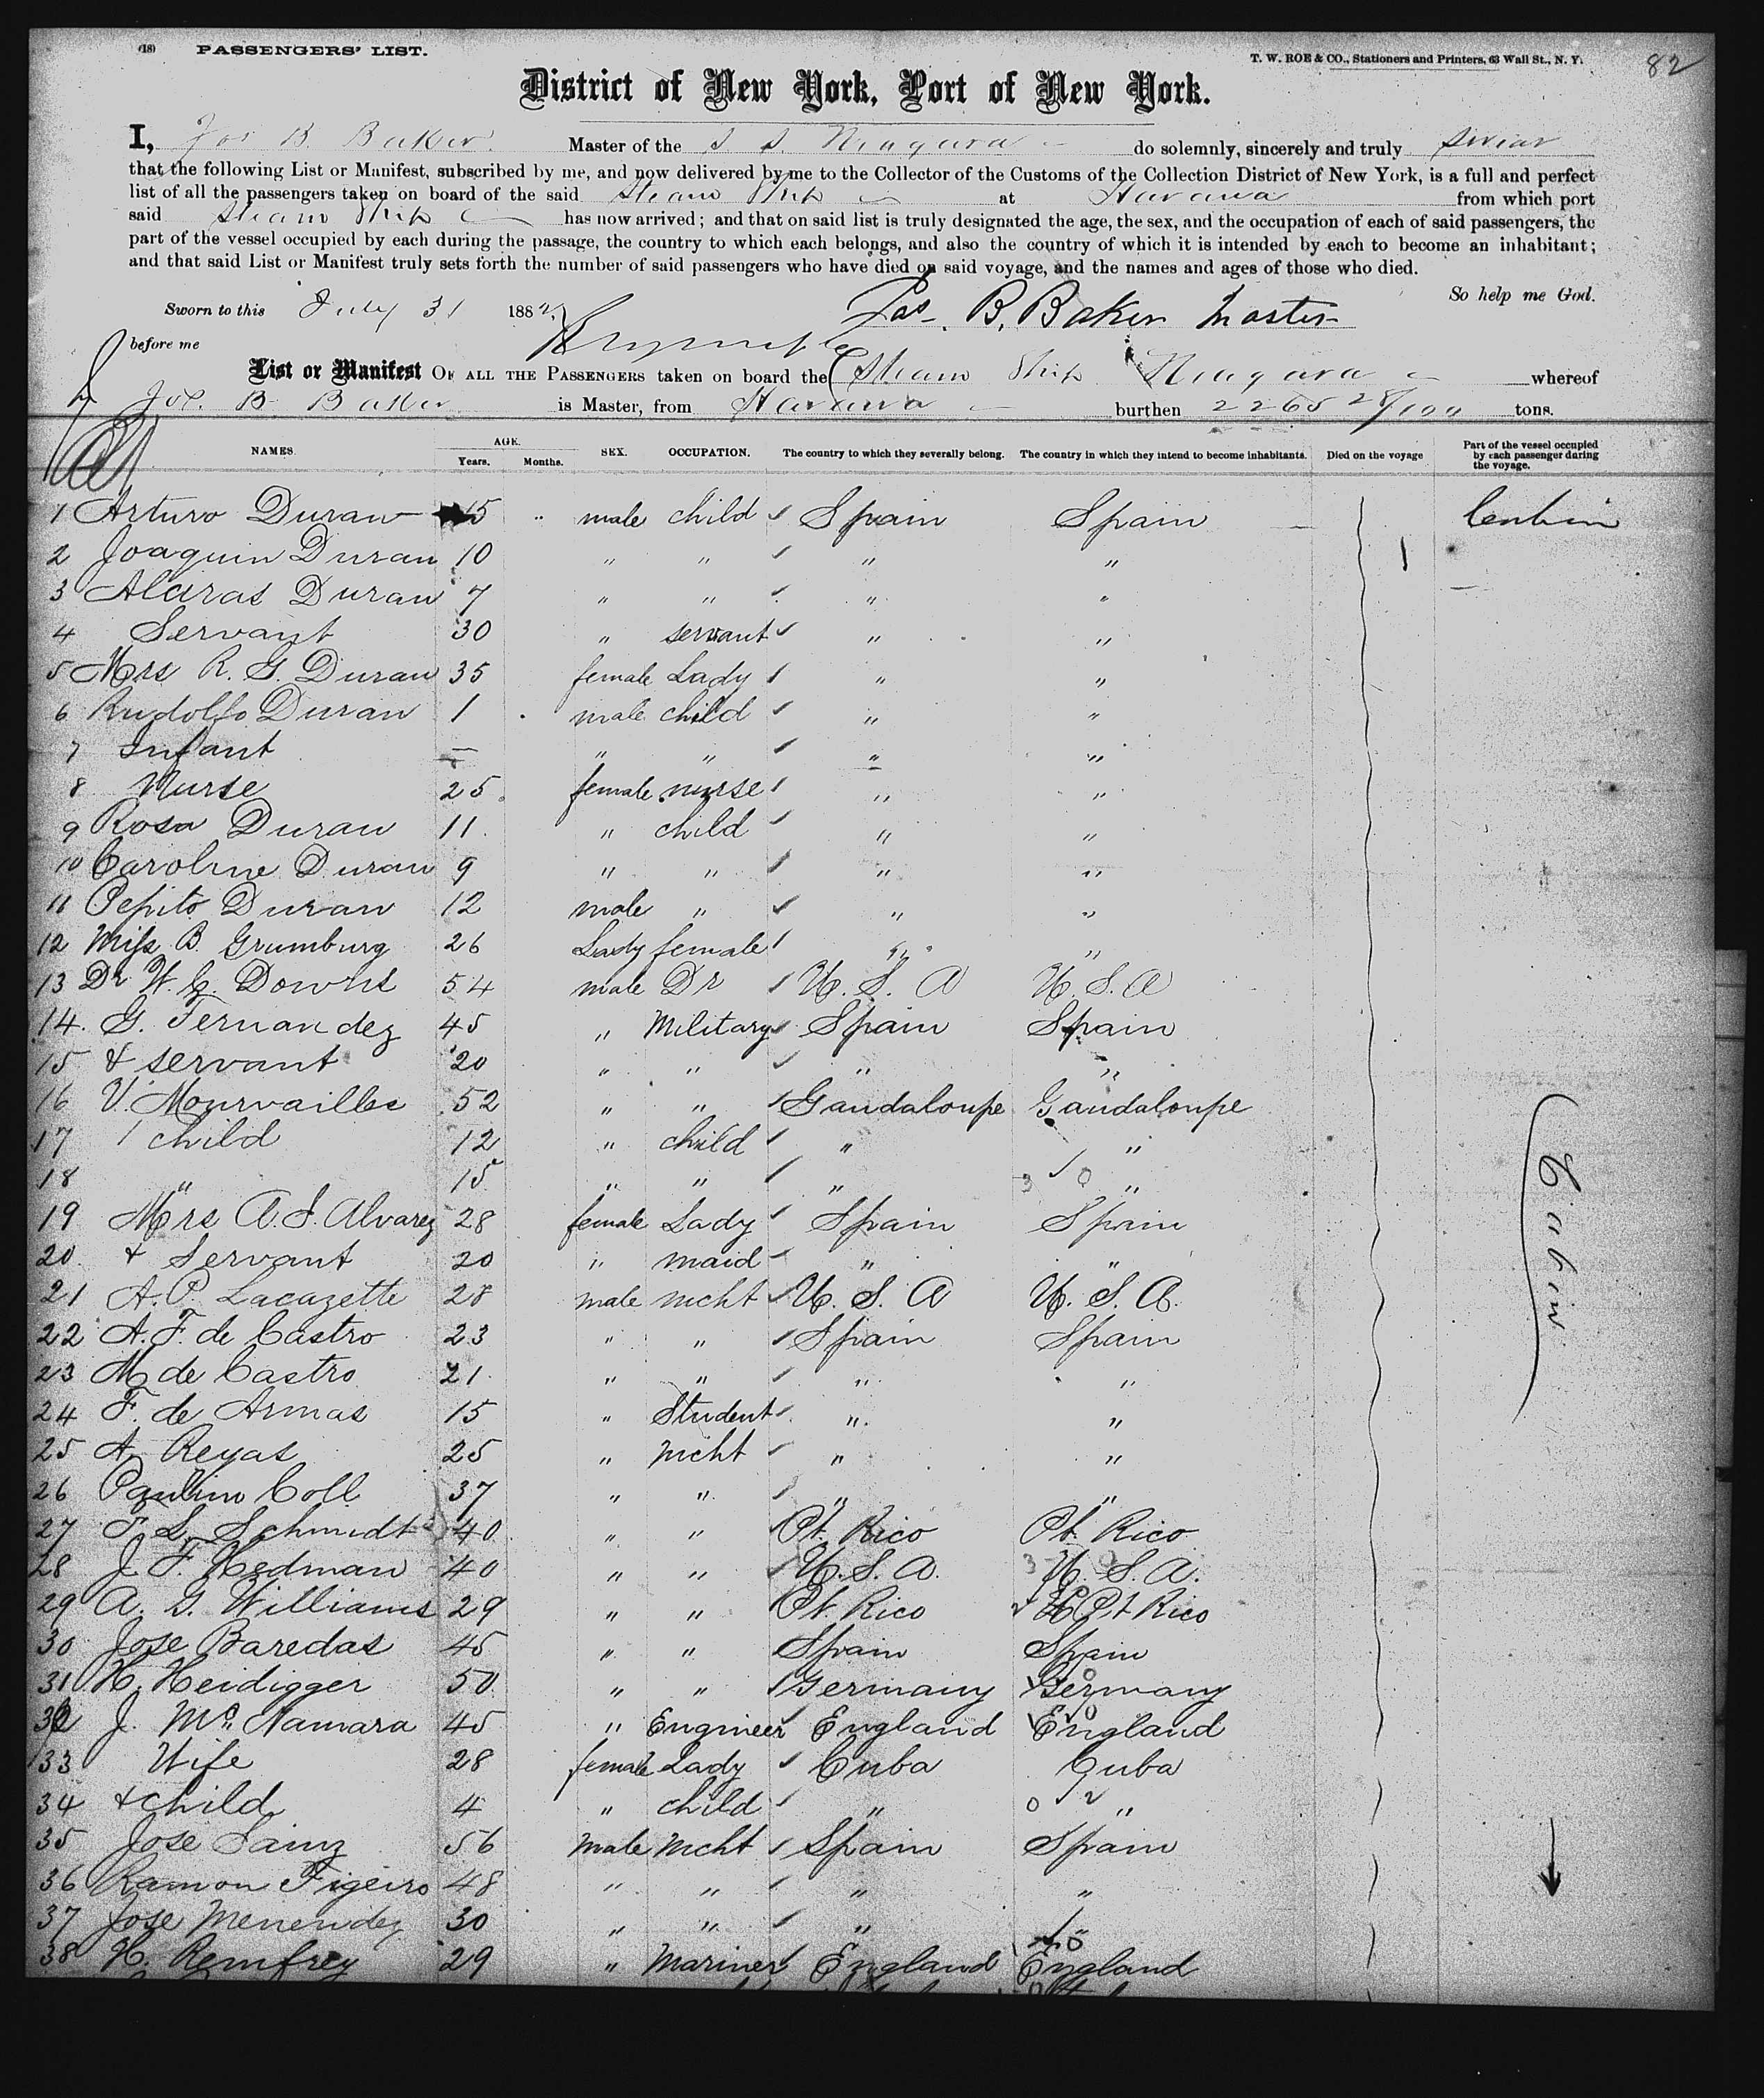 (18) PASSENGERS' LIST. T. W. ROE & CO., Stationers and Printers, 63 Wall St., N. Y. 82
District of New York, Port of New York.
I, Jos B. Baker Master of the S S. Niagara do solemnly, sincerely and truly swear
that the following List or Manifest, subscribed by me, and now delivered by me to the Collector of the Customs of the Collection District of New York, is a full and perfect
list of all the passengers taken on board of the said Steam Ship at Havana from which port
said Steam Ship has now arrived; and that on said list is truly designated the age, the sex, and the occupation of each of said passengers, the
part of the vessel occupied by each during the passage, the country to which each belongs, and also the country of which it is intended by each to become an inhabitant;
and that said List or Manifest truly sets forth the number of said passengers who have died on said voyage, and the names and ages of those who died.
So help me God.
Sworn to this July 31 1882 Jas. B. Baker Master
before me
List or Manifest OF ALL THE PASSENGERS taken on board the Steam Ship Niagara whereof
Jos. B. Baker is Master, from Havana burthen 2265 28/100 tons.
NAMES. AGE. Years. Months. SEX. OCCUPATION. The country to which they severally belong. The country in which they intend to become inhabitants. Died on the voyage Part of the vessel occupied by each passenger during the voyage.
1 Arturo Duran 15 " male child Spain Spain Cabin
2 Joaquin Duran 10 " " " "
3 Duran 7 " " " "
4 Servant 30 " servant " "
5 Mrs R. G. Duran 35 female Lady " "
6 Rudolfo Duran 1 male child " "
7 Infant — " " " "
8 Nurse 25 female nurse " "
9 Rosa Duran 11 " child " "
10 Caroline Duran 9 " " " "
11 Pepito Duran 12 male " " "
12 Miss B. Grumburg 26 Lady female " "
13 Dr W. C. Downs 54 male Dr U. S. A U. S. A
14. G. Fernandez 45 " Military Spain Spain
15 & servant 20 " " " "
16 V. Mourvailles 52 " " Gaudaloupe Gaudaloupe
17 1 child 12 " child " "
18 " 15 " " " "
19 Mrs A. S. Alvarez 28 female Lady Spain Spain
20 & Servant 20 " maid " "
21 A. P. Lacazette 28 male mcht U. S. A U. S. A.
22 A. F. de Castro 23 " " Spain Spain
23 M de Castro 21 " " " "
24 F. de Armas 15 " Student " "
25 A. Reyas 25 " mcht " "
26 Paulim Coll 37 " " " "
27 F. L. Schmidt 40 " " Pt. Rico Pt. Rico
28 J. F. Hedman 40 " " U. S. A. U. S. A.
29 A. G. Williams 29 " " Pt. Rico Pt Rico
30 Jose Baredas 45 " " Spain Spain
31 H. Heidigger 50 " " Germany Germany
32 J. McNamara 45 " Engineer England England
33 Wife 28 female Lady Cuba Cuba
34 & child 4 " child " "
35 Jose Sainz 56 male mcht Spain Spain
36 Ramon Figeiro 48 " " " "
37 Jose Menendez 30 " " " "
38 H. Remfrey 29 " Mariner England England
Cabin